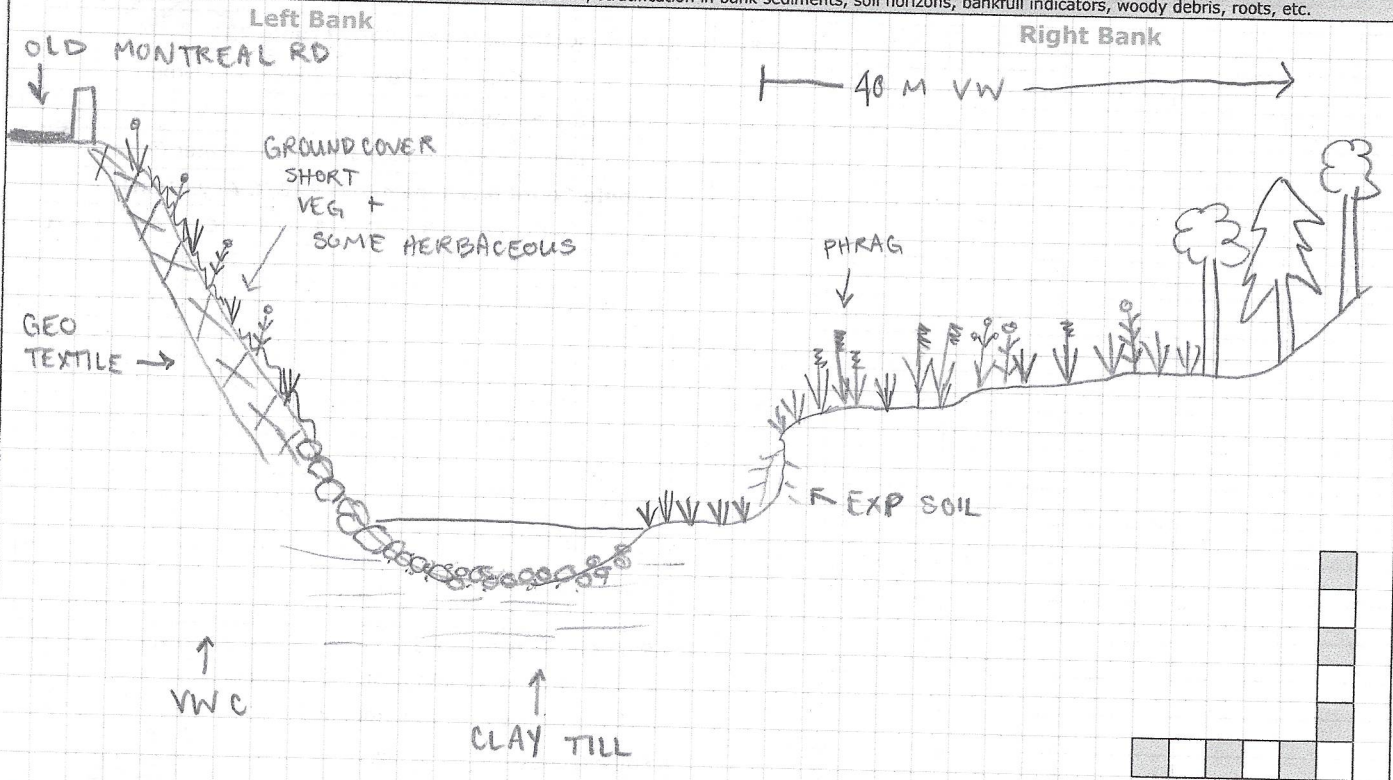 stratification in bank sediments, soil horizons, bankfull indicators, woody debris, roots, etc.
Left Bank
Right Bank
OLD MONTREAL RD
40 M VW
GROUNDCOVER
SHORT
VEG +
SOME HERBACEOUS
PHRAG
GEO
TEXTILE
EXP SOIL
VWC
CLAY TILL